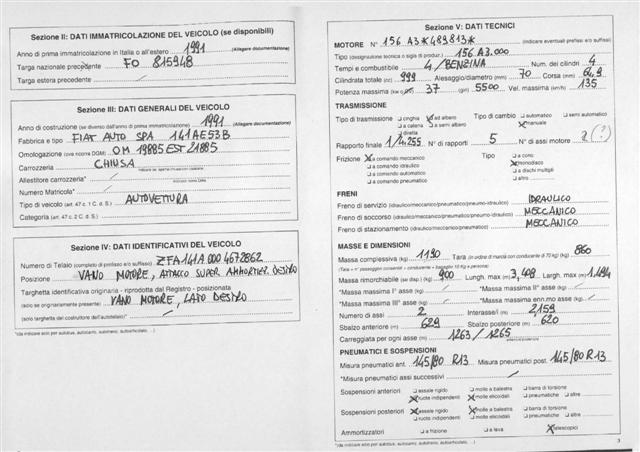 Sezione II: DATI IMMATRICOLAZIONE DEL VEICOLO (se disponibili)
Anno di prima immatricolazione in Italia o all'estero 1991 (Allegare documentazione)
Targa nazionale precedente FO 815948
Targa estera precedente /
Sezione III: DATI GENERALI DEL VEICOLO
Anno di costruzione (se diverso dall'anno di prima immatricolazione) 1991 (Allegare documentazione)
Fabbrica e tipo FIAT AUTO SPA 141AE53B
Omologazione (ove ricorra DGM) OM 19885 EST 21885
Carrozzeria CHIUSA
Allestitore carrozzeria* /
Numero Matricola* /
Tipo di veicolo (art. 47 c. 1 C. d. S.) AUTOVETTURA
Categoria (art. 47 c. 2 C. d. S.)
Sezione IV: DATI IDENTIFICATIVI DEL VEICOLO
Numero di Telaio (completo di prefisso e/o suffisso) ZFA141A000 4672862
Posizione VANO MOTORE, ATTACCO SUPER. AMMORTIZZ. DESTRO
Targhetta identificativa originaria - riprodotta dal Registro - posizionata
(solo se originariamente presente) VANO MOTORE, LATO DESTRO
(solo targhetta del costruttore dell'autotelaio)* /
*(da indicare solo per autobus, autocarro, autotreno, autoarticolato, ...)
Sezione V: DATI TECNICI
MOTORE N° 156 A3*489813* (indicare eventuali prefissi e/o suffissi)
Tipo (designazione tecnica o sigla di produz.) 156 A3.000
Tempi e combustibile 4 / BENZINA Num. dei cilindri 4
Cilindrata totale (cc) 999 Alesaggio/diametro (mm) 70 Corsa (mm) 64,9
Potenza massima 37 (giri) 5500 Vel. massima (km/h) 135
TRASMISSIONE
Tipo di trasmissione cinghia ad albero Tipo di cambio automatico semi automatico
a catena a semi albero manuale
diretta
Rapporto finale 1/4.255 N° di rapporti 5 N° di assi motore 2 (?)
Frizione a comando meccanico Tipo a cono
a comando idraulico monodisco
a comando automatico a dischi multipli
a comando pneumatico altro
FRENI
Freno di servizio (idraulico/meccanico/pneumatico/pneumo-idraulico) IDRAULICO
Freno di soccorso (idraulico/meccanico/pneumatico/pneumo-idraulico) MECCANICO
Freno di stazionamento (idraulico/meccanico/pneumatico) MECCANICO
MASSE E DIMENSIONI
Massa complessiva (kg) 1190 Tara (in ordine di marcia con conducente di 70 kg) (kg) 860
Massa rimorchiabile (se disp.) (kg) 900 Lungh. max (m) 3,408 Largh. max (m) 1,494
*Massa massima I° asse (kg) / *Massa massima II° asse (kg) /
*Massa massima III° asse (kg) / *Massa massima enn.mo asse (kg) /
Numero di assi 2 Interasse/i (m) 2,159
Sbalzo anteriore (m) 629 Sbalzo posteriore (m) 620
Carreggiata per ogni asse (mm) 1263 / 1265
PNEUMATICI E SOSPENSIONI
Misura pneumatici ant. 145/80 R13 Misura pneumatici post. 145/80 R.13
*Misura pneumatici assi successivi /
Sospensioni anteriori assale rigido molle a balestra barra di torsione
ruote indipendenti molle elicoidali pneumatiche altre
Sospensioni posteriori assale rigido molle a balestra barra di torsione
ruote indipendenti molle elicoidali pneumatiche altre
Ammortizzatori a frizione a leva telescopici
*(da indicare solo per autobus, autocarro, autotreno, autoarticolato, ...)
3